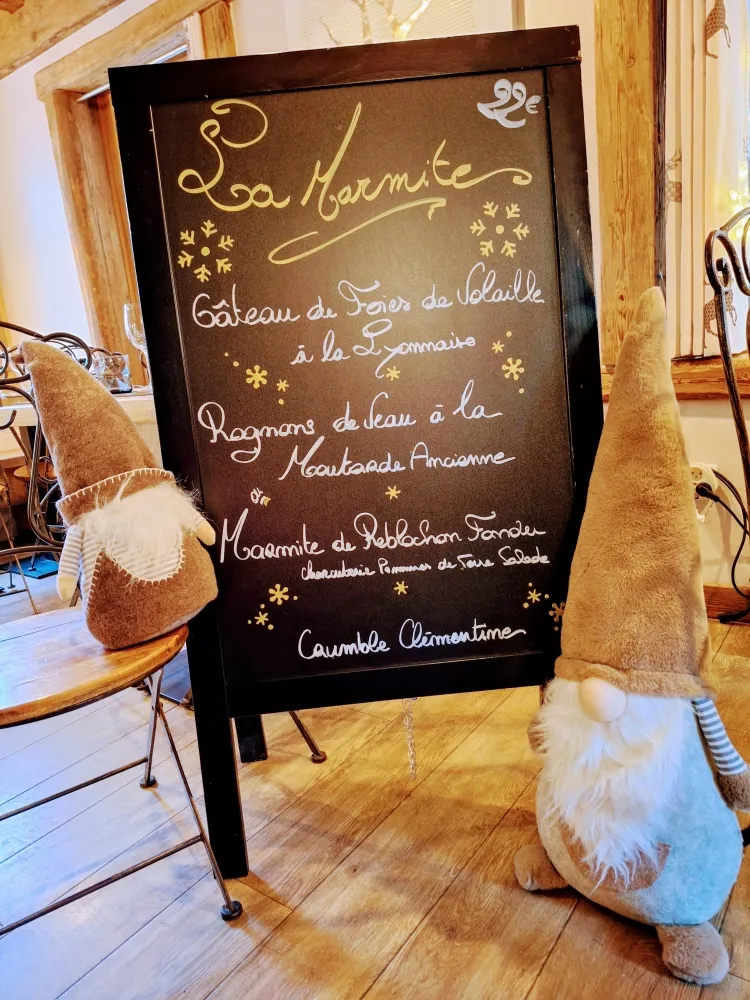 22€
La Marmite
Gâteau de Foies de Volaille
à la Lyonnaise
Rognons de Veau à la
Moutarde Ancienne
ou
Marmite de Reblochon Fondu
Charcuterie Pommes de Terre Salade
Crumble Clémentine